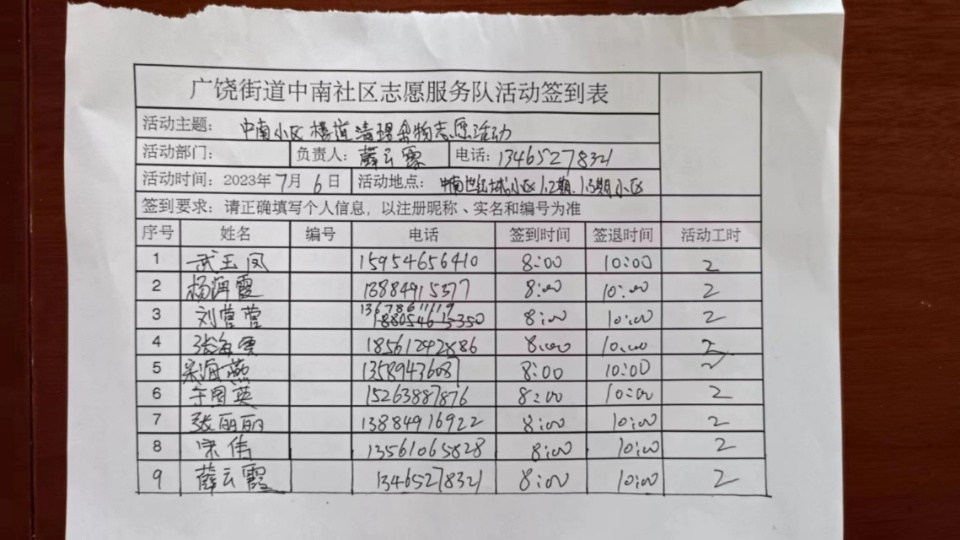 广饶街道中南社区志愿服务队活动签到表
活动主题: 中南小区楼道清理杂物志愿活动
活动部门: 负责人: 薛云霞 电话: 13465278321
活动时间: 2023年7月6日 活动地点: 中南世纪城小区1.2期、1.3期小区
签到要求: 请正确填写个人信息, 以注册昵称、实名和编号为准
序号 姓名 编号 电话 签到时间 签退时间 活动工时
1 武玉凤 15954656410 8:00 10:00 2
2 杨润霞 13884915377 8:00 10:00 2
3 刘营营 13678611119 8:00 10:00 2
4 张海霞 18561242886 8:00 10:00 2
5 宋海燕 13589436087 8:00 10:00 2
6 于国英 15263887876 8:00 10:00 2
7 张丽丽 13884916922 8:00 10:00 2
8 宋伟 13561065828 8:00 10:00 2
9 薛云霞 13465278321 8:00 10:00 2